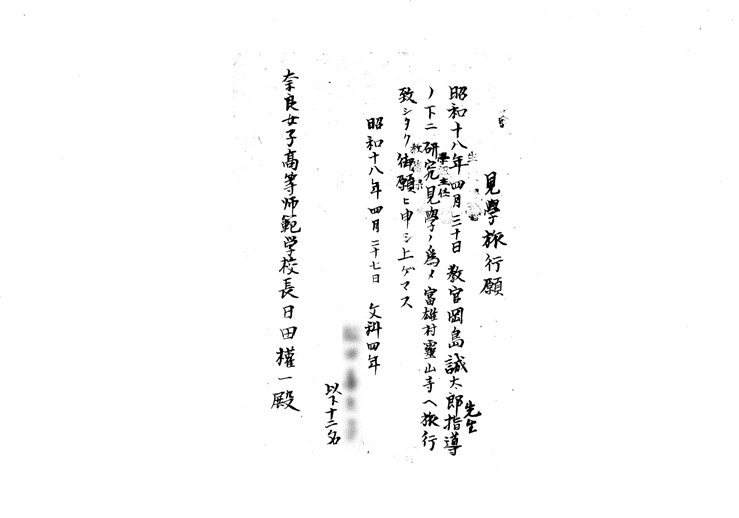 見學旅行願
昭和十八年四月三十日 教官岡島誠太郎先生指導
ノ下ニ研究見學ノ爲メ富雄村靈山寺ヘ旅行
致シタク御願ヒ申シ上ゲマス
昭和十八年四月二十七日 文科四年
以下十二名
奈良女子高等师範学校長日田權一殿